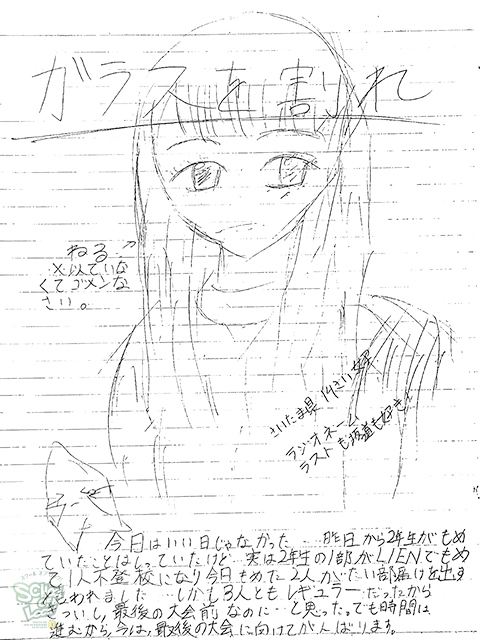 ガラスを割れ
ねる↗
×似ていな
くてゴメンな
さい。
さいたま県 14さい 女子
ラジオネーム
ラストも坂道も好き!
今日はいい日じゃなかった…昨日から2年生がもめ
ていたことはしっていたけど…実は2年生の1部がLIENでもめ
て1人不登校になり今日もめた2人がたい部届けを出す
といわれました…しかも3人ともレギュラーだったから
きついし,最後の大会前なのに…と思った。でも時間は
進むから,今は,最後の大会に向けてがんばります。